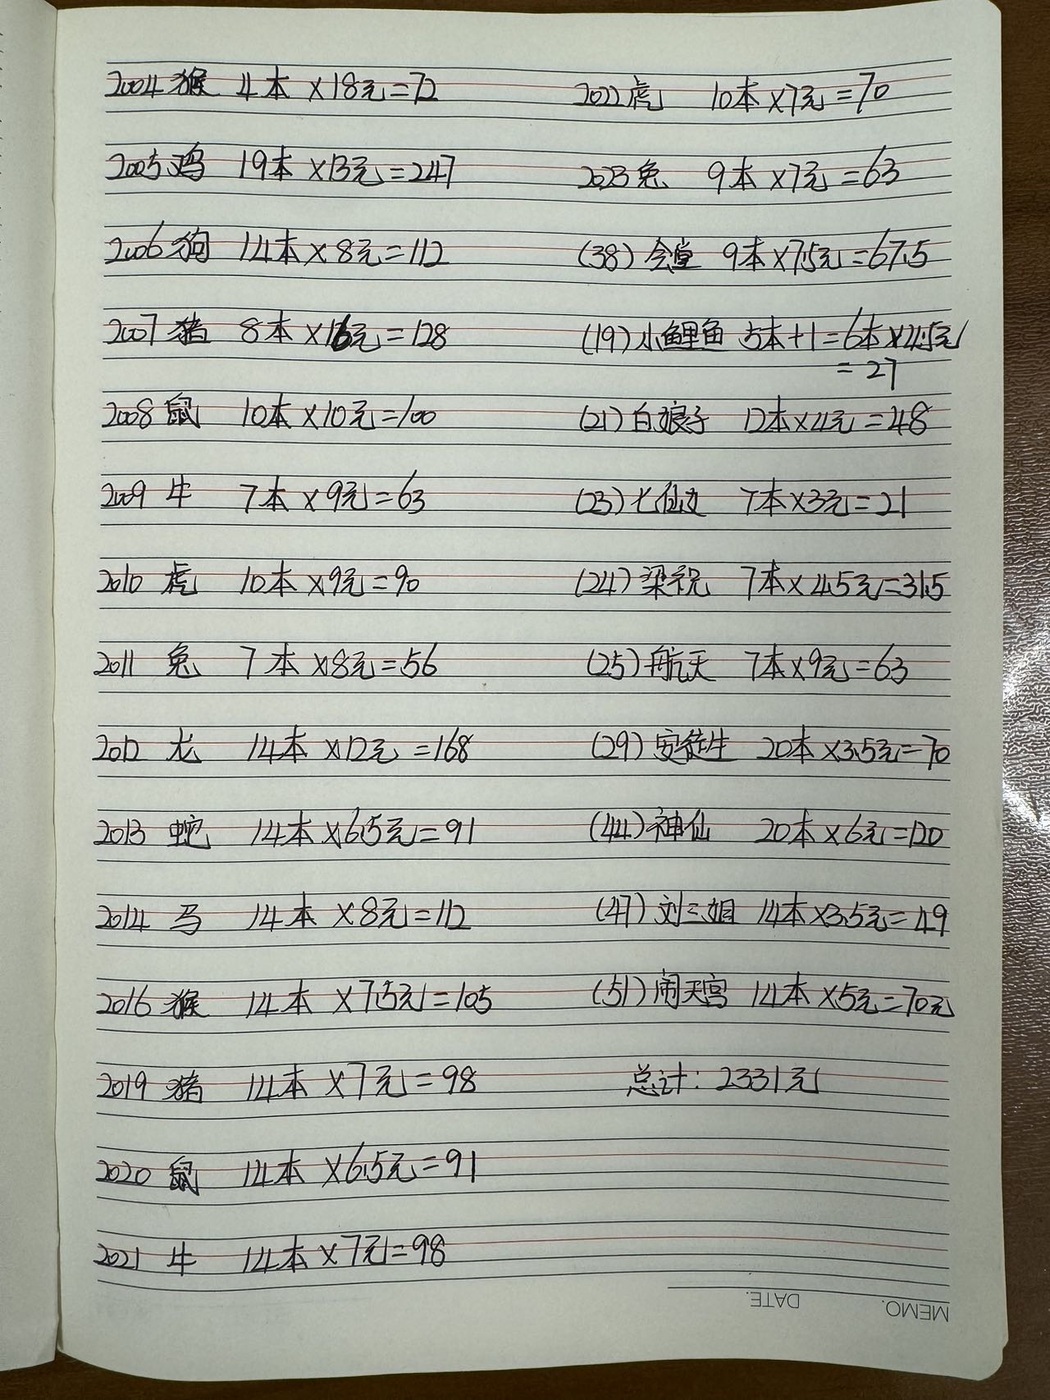 2004 猴 4本 ×18元=72
2005 鸡 19本 ×13元=247
2006 狗 14本 ×8元=112
2007 猪 8本 ×16元=128
2008 鼠 10本 ×10元=100
2009 牛 7本 ×9元=63
2010 虎 10本 ×9元=90
2011 兔 7本 ×8元=56
2012 龙 14本 ×12元=168
2013 蛇 14本 ×6.5元=91
2014 马 14本 ×8元=112
2016 猴 14本 ×7.5元=105
2019 猪 14本 ×7元=98
2020 鼠 14本 ×6.5元=91
2021 牛 14本 ×7元=98
2022虎 10本 ×7元=70
2023兔 9本 ×7元=63
(38) 会堂 9本×7.5元=67.5
(19) 小鲤鱼 5本+1=6本×4.5元
=27
(21) 白娘子 12本×4元=48
(23) 七仙女 7本×3元=21
(24) 梁祝 7本×4.5元=31.5
(25) 航天 7本×9元=63
(29) 安徒生 20本×3.5元=70
(44) 神仙 20本×6元=120
(47) 刘三姐 14本×3.5元=49
(51) 闹天宫 14本×5元=70元
总计: 2331元
MEMO. DATE.